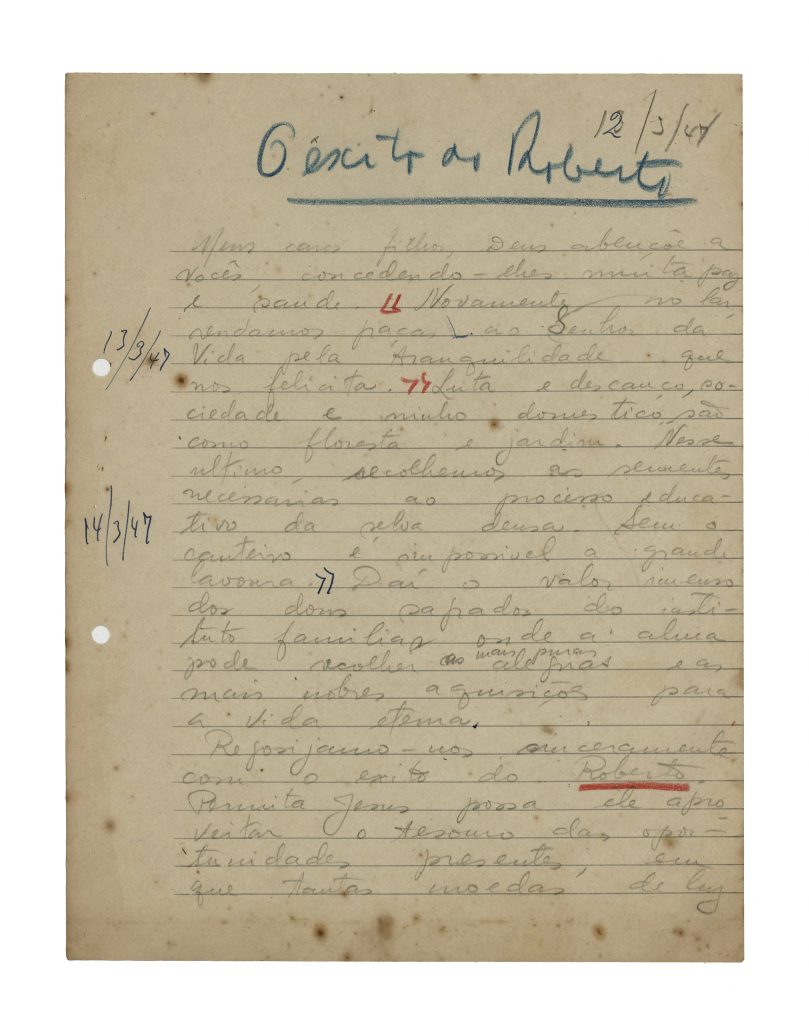 12/3/47
O êxito do Roberto
Meus caros filhos, Deus abençõe a
vocês, concedendo-lhes muita paz
e saude. Novamente, no lar,
rendamos graças ao Senhor da
13/3/47
Vida pela tranquilidade que
nos felicita. Luta e descanço, so-
ciedade e ninho domestico, são
como floresta e jardim. Nesse
ultimo, recolhemos as sementes
necessarias ao processo educa-
14/3/47
tivo da selva densa. Sem o
canteiro é impossivel a grande
lavoura. Daí o valor imenso
dos dons sagrados do insti-
tuto familiar onde a alma
pode recolher as mais puras alegrias e as
mais nobres aquisições para
a vida eterna.
Regosijamo-nos sinceramente
com o exito do Roberto.
Permita Jesus possa ele apro
veitar o tesouro das opor-
tunidades presentes, em
que tantas moedas de luz